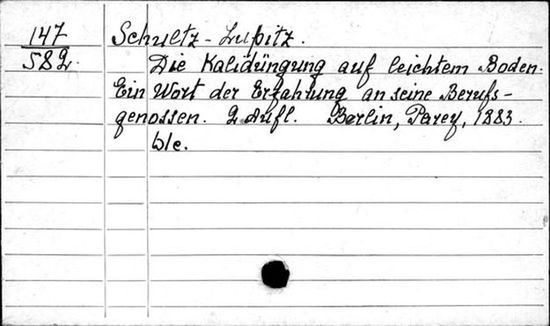 147
582
Schultz-Lupitz.
Die Kalidüngung auf leichtem Boden.
Ein Wort der Erfahrung an seine Berufs-
genossen. 2. Aufl. Berlin, Parey, 1883.